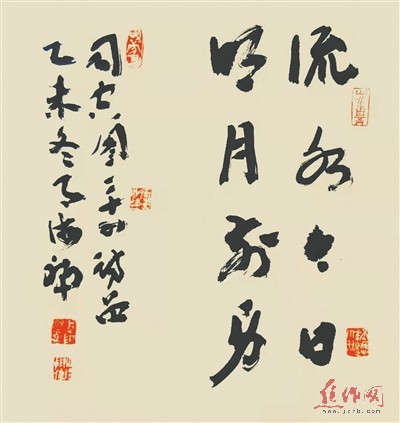 流水今日
明月前身
司空图二十四诗品
乙未冬
焦作网
www.jzrb.com